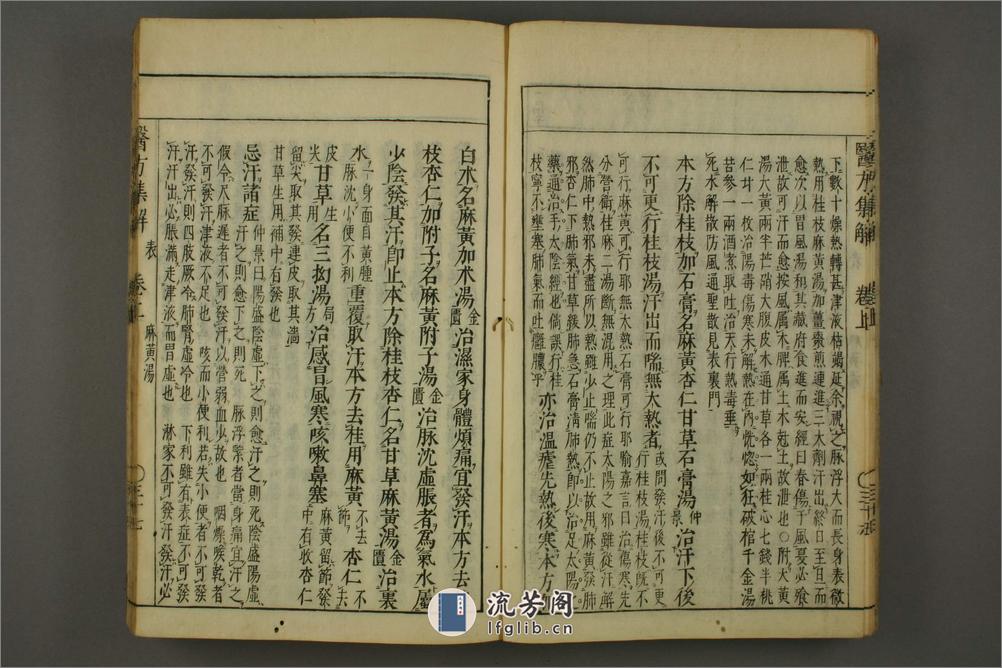 醫方集解
卷上
下數十條熱轉甚津液枯竭延余視之脉浮大而長身表微
熱用桂枝麻黃湯加薑棗煎連進三大劑汗出終日至旦而
愈次以胃風湯和其藏府食進而安經曰春傷于風夏必飧
泄故可汗而愈按風屬木脾屬土木尅土故泄也〇附大黃
湯大黃兩半芒硝大腹皮木通甘草各一兩桂心七錢半桃
仁廿一枚治陽毒傷寒未解熱在內恍惚如狂破棺千金湯
苦參一兩酒煮取吐治天行熱毒垂
死水解散防風通聖散見表裏門
本方除桂枝加石膏名麻黃杏仁甘草石膏湯仲景治汗下後
不可更行桂枝湯汗出而喘無大熱者或問發汗後不可更
行桂枝湯桂枝旣不
可行麻黃可行耶無大熱石膏可行耶喻嘉言曰治傷寒先
分營衛桂麻二湯斷無混用之理此症太陽之邪雖從汗解
然肺中熱邪未盡所以熱雖少止喘仍不止故用麻黃發肺
邪杏仁下肺氣甘草緩肺急石膏清肺熱即以治足太陽之
藥通治手太陰經也倘誤行桂
枝寧不壅塞肺氣而吐癰膿乎
亦治溫瘧先熱後寒本方加
白朮名麻黃加朮湯金匱治濕家身體煩痛宜發汗本方去桂
枝杏仁加附子名麻黃附子湯金匱治脉沈虛脹者為氣水屬
少陰發其汗即止本方除桂枝杏仁名甘草麻黃湯金匱治裏
水一身面目黃腫
脉沈小便不利
重覆取汗本方去桂用麻黃不去節杏仁不去
皮尖甘草生用名三拗湯局方治感冒風寒咳嗽鼻塞麻黃留節發
中有收杏仁
留尖取其發連皮取其濇
甘草生用補中有發也
忌汗諸症仲景曰陽盛陰虛下之則愈汗之則死陰盛陽虛
汗之則愈下之則死 脉浮緊者當身痛宜汗之
假令尺脉遲者不可發汗以營弱血少故也 咽燥喉乾者
不可發汗津液不足也 咳而小便利若失小便者不可發
汗汗發則四肢厥冷肺腎虛冷也 下利雖有表症不可發
汗汗出必脹滿走津液而胃虛也 淋家不可發汗發汗必
醫方集解
表
卷上
麻黃湯
流芳阁
lfglib.cn